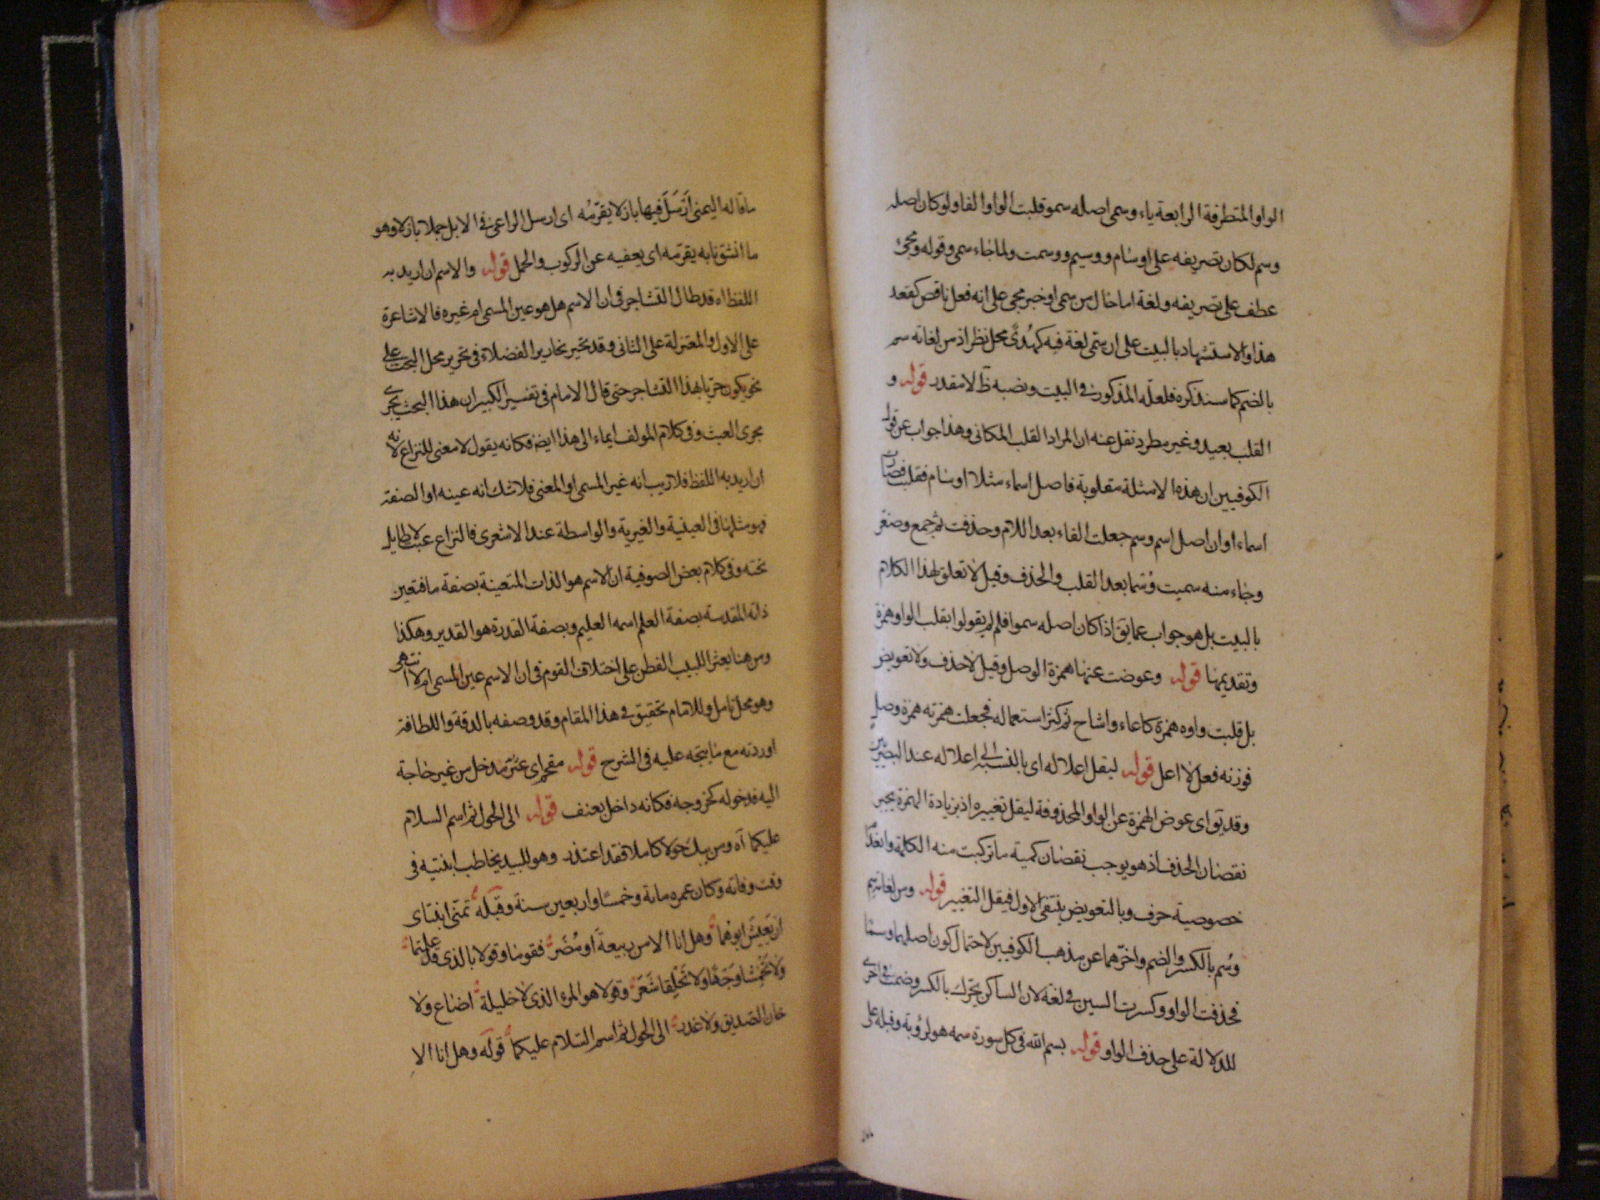 الواو المتطرفة الرابعة ياء وسمى اصله سمو قلبت الواو الفا ولو كان اصله
وسم لكان تصريفه على اوسام ووسيم ووسمت ولما جاء سمى وقوله ومجئ
عطف على تصريفه ولغة اما حال من سمى او خبر مجى على انه فعل ناقص كقعد
هذا والاستشهاد بالبيت على ان سمى لغة فيه كهدى محل نظر اذ من لغاته سم
بالضم كما سنذكره فلعله المذكور في البيت ونصبه ظ لا مقدر قوله و
القلب بعيد وغير مطرد نقل عنه ان المراد القلب المكانى وهذا جواب عن قول
الكوفيين ان هذه الامثلة مقلوبة فاصل اسماء مثلا اوسام فقلبت فصارت
اسماء او ان اصل اسم وسم جعلت الفاء بعد اللام وحذفت ثم جمع وصغر
وجاء منه سميت وسما بعد القلب والحذف وقيل لا تعلق لهذا الكلام
بالبيت بل هو جواب عما يق اذا كان اصله سموا فلم لم يقولوا بقلب الواو همزة
وتقديمها قوله وعوضت عنها همزة الوصل وقيل لا حذف ولا تعويض
بل قلبت واوه همزة كاعاء واشاح ثم كثر استعماله فجعلت همزته همزة وصل
فوزنه فعل لا اعل قوله ليقل اعلاله اى بالنسبة الى اعلاله عند البصريين
وقد يق اى عوض الهمزة عن الواو المحذوفة ليقل تغييره اذ بزيادة الهمزة يجبر
نقصان الحذف اذ هو يوجب نقصان كمية ما تركبت منه الكلمة وانعدام
خصوصية حرف وبالتعويض ينتفى الاول فيقل التغيير قوله ومن لغاته سم
وسم بالكسر والضم واخرهما عن مذهب الكوفيين لاحتمال كون اصلهما وسما
فحذفت الواو وكسرت السين في لغة لان الساكن يحرك بالكسر وضمت في اخرى
للدلالة على حذف الواو قوله بسم الله فى كل سورة سمه هو لرؤبة وقبله على
ما قاله اليمنى ارسل فيها بازلا يقرمه اى ارسل الراعى فى الابل جملا بازلا وهو
ما انشق نابه يقرمه اى يعفيه عن الركوب والحمل قوله والاسم ان اريد به
اللفظ اه قد طال التشاجر فى ان الاسم هل هو عين المسمى ام غيره فالاشاعرة
على الاول والمعتزلة على الثانى وقد تحير نحارير الفضلاء فى تحرير محل البحث على
نحو يكون حريا بهذا التشاجر حتى قال الامام فى تفسير الكبير ان هذا البحث يجرى
مجرى العبث وفى كلام المولف ايماء الى هذا ايضا فكانه يقول لا معنى للنزاع لانه
ان اريد به اللفظ فلا ريب انه غير المسمى او المعنى فلا شك انه عينه او الصفة
فهو مثلها فى العينية والغيرية والواسطة عند الاشعرى فالنزاع عبث لا طايل
تحته وفى كلام بعض الصوفية ان الاسم هو الذات المتعينة بصفة ما فتعين
ذاته المقدسة بصفة العلم اسمه العليم وبصفة القدرة هو القدير وهكذا
ومن هنا يعثر اللبيب الفطن على اختلاف القوم فى ان الاسم عين المسمى ام لا انتهى
وهو محل تامل وللامام تحقيق فى هذا المقام وقد وصفه بالدقة واللطافة
اوردته مع ما يتجه عليه فى الشرح قوله مقحم اى عثر مدخل من غير حاجة
اليه فدخوله كخروجه فكانه داخل بعنف قوله الى الحول ثم اسم السلام
عليكما آه ومن يبك حولا كاملا فقد اعتذر وهو للبيد يخاطب ابنتيه فى
وقت وفاته وكان عمره مائة وخمسا واربعين سنة وقبله تمنى ابنتاى
ان يعيش ابوهما وهل انا الا من ربيعة او مضر فقوما وقولا بالذى قد علمتما
ولا تخمشا وجها ولا تحلقا شعر وقولا هو المرء الذى لا خليله اضاع ولا
خان الصديق ولا غدر الى الحول ثم اسم السلام عليكما قوله وهل انا الا